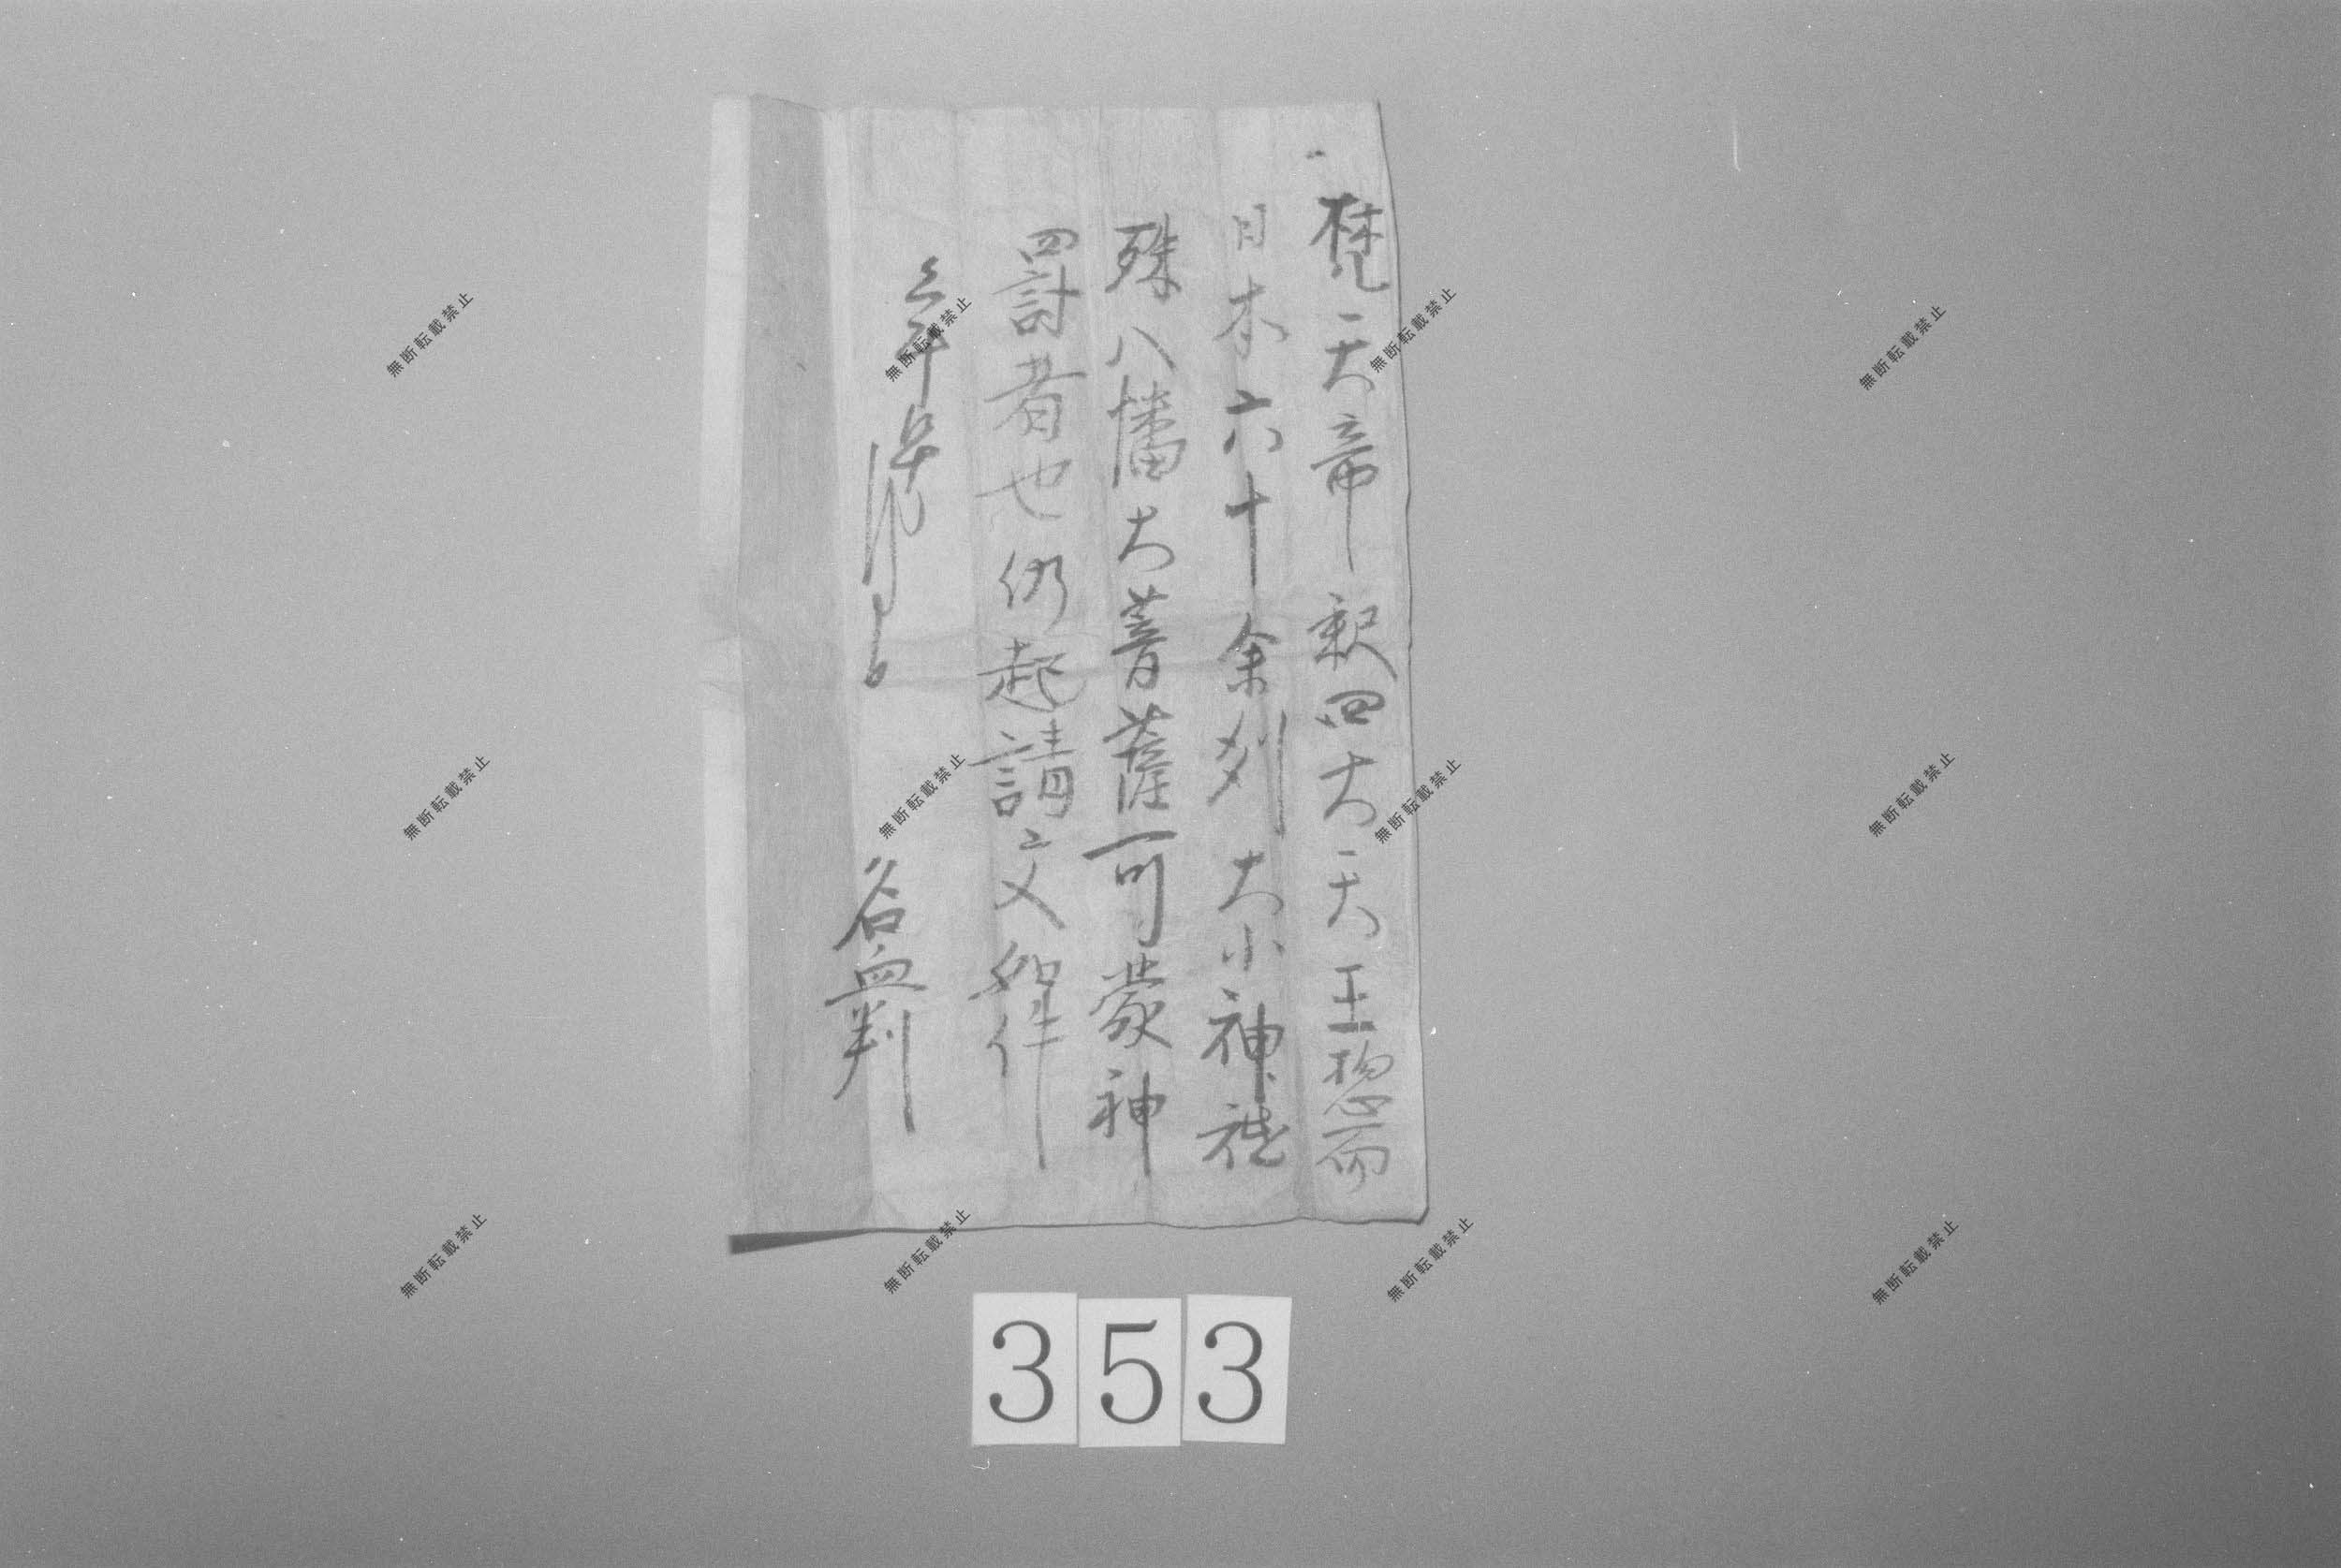 一梵天帝釈四大天王惣而
日本六十余州大小神祇
殊八幡大菩薩可蒙神
罰者也仍起請文如件
名血判
353
無断転載禁止
無断転載禁止
無断転載禁止
無断転載禁止
無断転載禁止
無断転載禁止
無断転載禁止
無断転載禁止
無断転載禁止
無断転載禁止
無断転載禁止
無断転載禁止